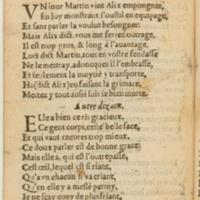 VN iour Martin vint Alix empoigner,
En luy monstrant l'oustil en equipage,
Et sans parler la voulut besongner:
Mais Alix dict, vous me feriez outrage,
Il est trop gros, & long à l'auantage.
Lors dict Martin, tout en vostre fendasse
Ne le mettray, adonc ques il l'embrasse,
Et seulement la moytié y transporte,
Ha (dict Alix) en faisant la grimace,
Mettez y tout aussi suis ie bien morte.
Autre dizain.
Elle a bien ce ris gracieux,
Ce gent corps, ceste belle face,
Et qui vaut encores trop mieux,
Ce doux parler est de bonne grace:
Mais elle a, qui est l'outrepasse,
Cest œil, lequel si fort estans,
Qu'à vn chacun il va criant,
Qu'en elle y a mesle parmy,
Je ne sçay quoy de plus friant,